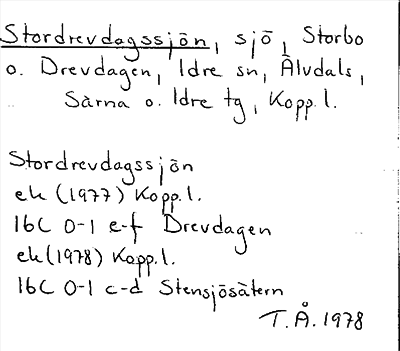 Stordrevdagssjön, sjö, Storbo
o. Drevdagen, Idre sn, Älvdals,
Särna o. Idre tg, Kopp. l.
Stordrevdagssjön
ek (1977) Kopp. l.
16C 0-1 e-f Drevdagen
ek (1978) Kopp. l.
16C 0-1 c-d Stensjösätern
T. Å. 1978